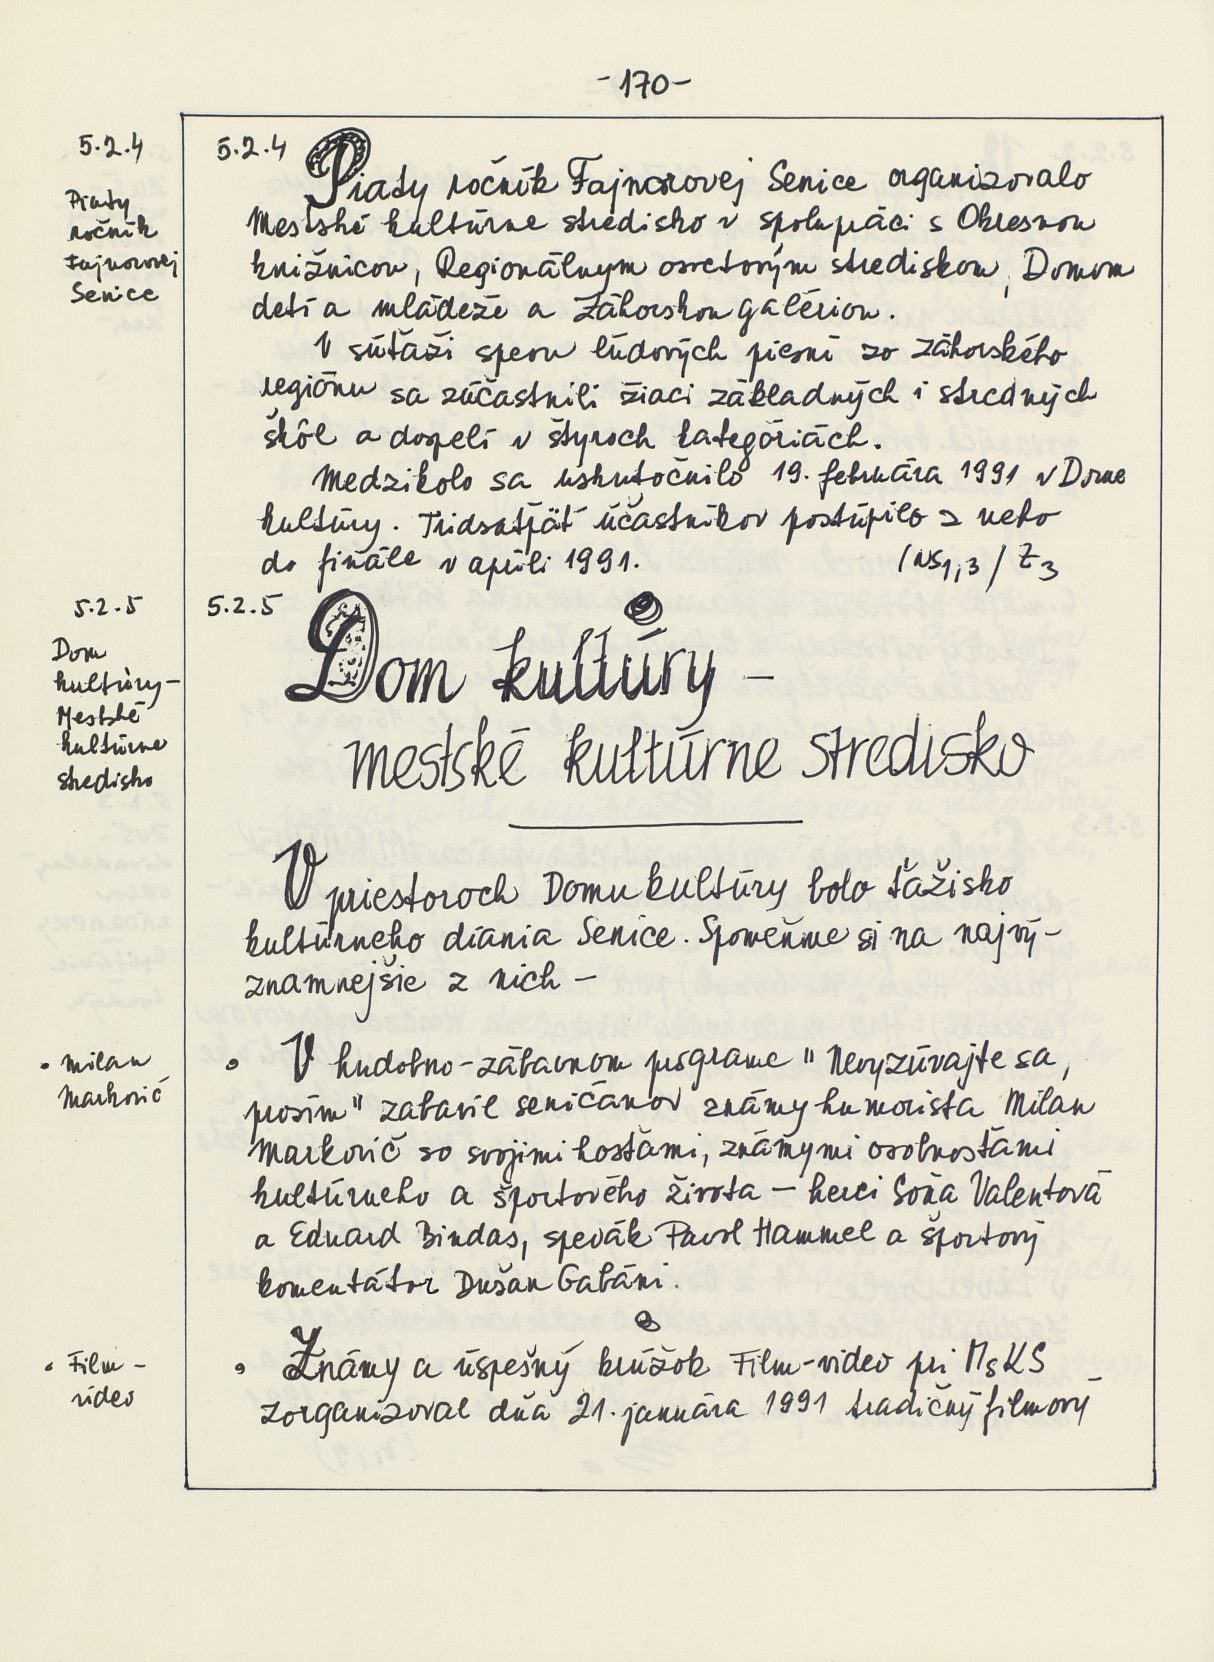 -170-
5.2.4
Piaty
ročník
Fajnorovej
Senice
5.2.4 Piaty ročník Fajnorovej Senice organizovalo
Mestské kultúrne stredisko v spolupráci s Okresnou
knižnicou, Regionálnym osvetovým strediskom, Domom
detí a mládeže a Záhorskou galériou.
V súťaži spevu ľudových piesní zo záhorského
regiónu sa zúčastnili žiaci základných i stredných
škôl a dospelí v štyroch kategóriách.
Medzikolo sa uskutočnilo 19. februára 1991 v Dome
kultúry. Tridsaťpäť účastníkov postúpilo z neho
do finále v apríli 1991. /NS1,3/ Z3
5.2.5
Dom
kultúry-
Mestské
kultúrne
stredisko
5.2.5
Dom kultúry -
mestské kultúrne stredisko
V priestoroch Domu kultúry bolo ťažisko
kultúrneho diania Senice. Spomeňme si na najvý-
znamnejšie z nich -
• Milan
Markovič
• V hudobno-zábavnom programe "Nevyzúvajte sa,
prosím" zabavil seničanov známy humorista Milan
Markovič so svojimi hosťami, známymi osobnosťami
kultúrneho a športového života - herci Soňa Valentová
a Eduard Bindas, spevák Pavol Hammel a športový
komentátor Dušan Gabáni.
• Film -
video
• Známy a úspešný krúžok Film-video pri MsKS
zorganizoval dňa 21. januára 1991 tradičný filmový